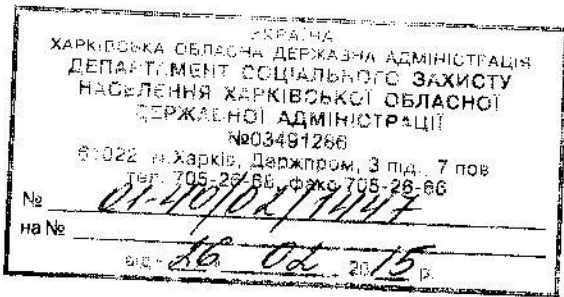 УКРАЇНА
ХАРКІВСЬКА ОБЛАСНА ДЕРЖАВНА АДМІНІСТРАЦІЯ
ДЕПАРТАМЕНТ СОЦІАЛЬНОГО ЗАХИСТУ
НАСЕЛЕННЯ ХАРКІВСЬКОЇ ОБЛАСНОЇ
ДЕРЖАВНОЇ АДМІНІСТРАЦІЇ
№03491286
61022 м.Харків, Держпром, 3 під., 7 пов
тел. 705-26-66, факс 705-26-66
№ 01-40/02/1447
на №
від 26 02 2015 р.